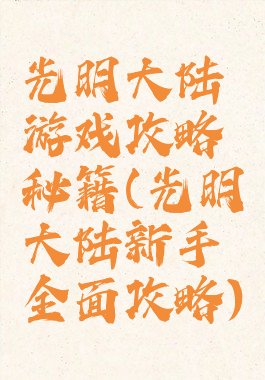 光明大陆
游戏攻略
秘籍(光明
大陆新手
全面攻略)